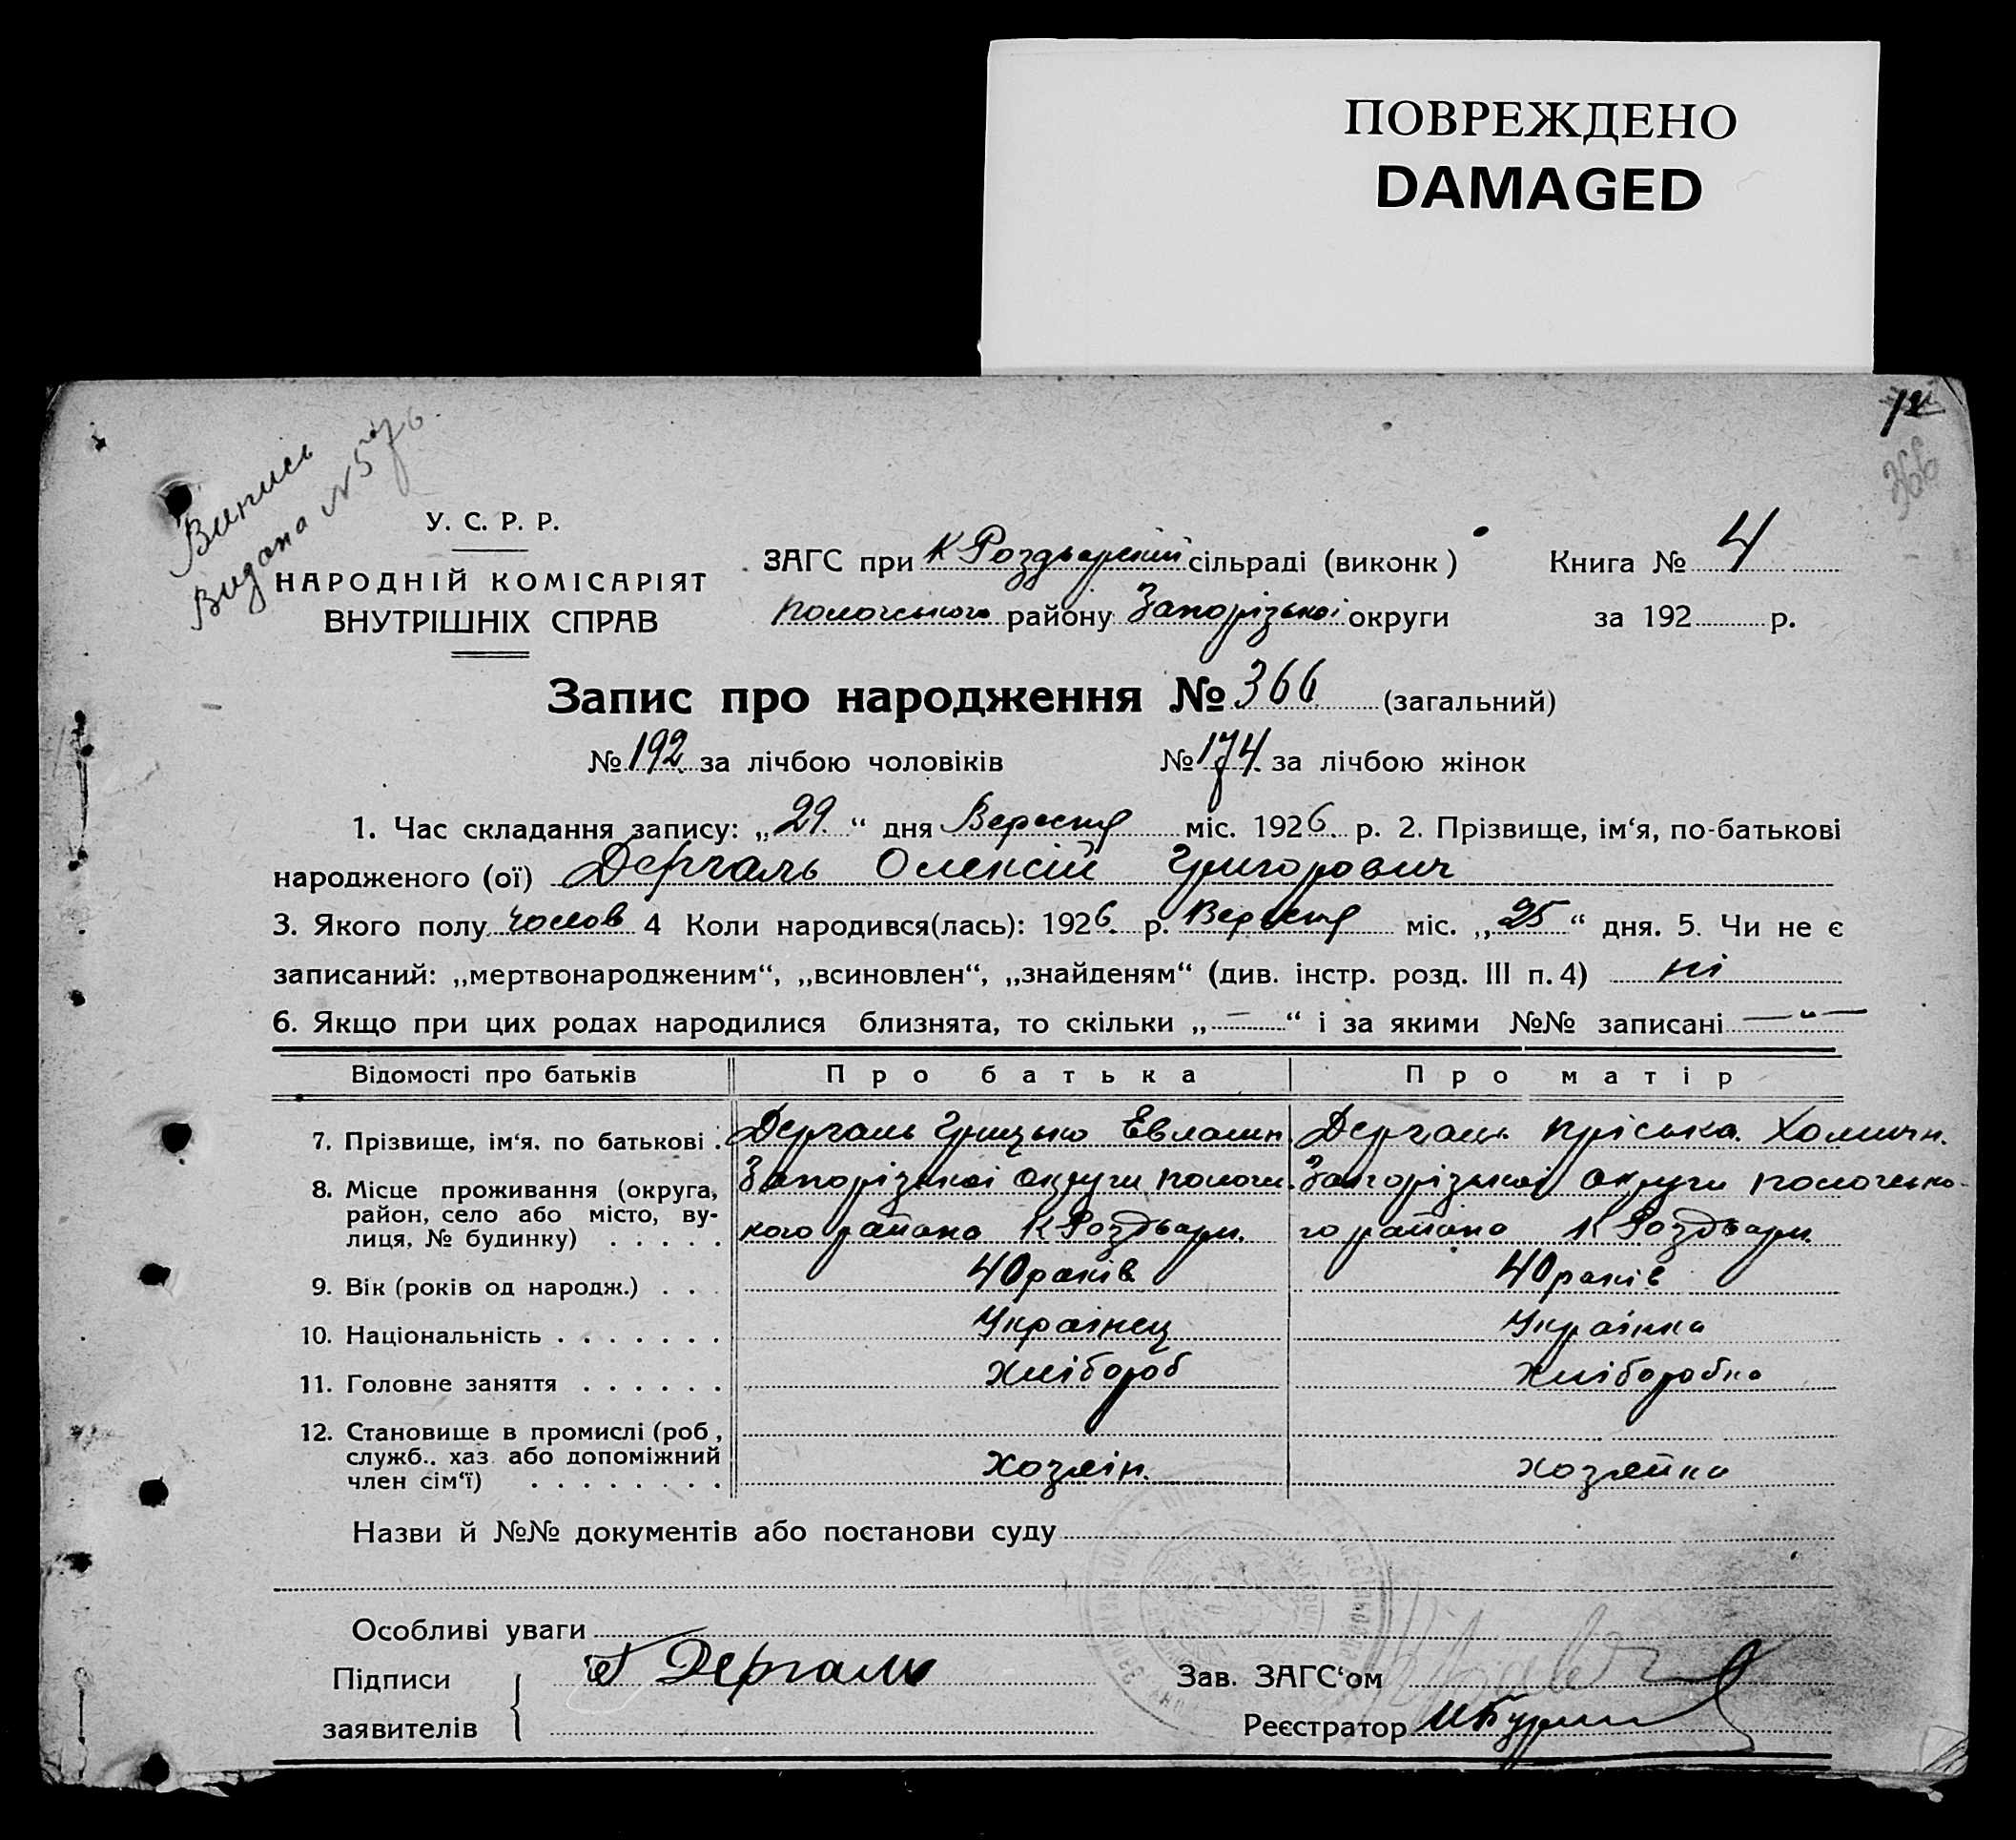 ПОВРЕЖДЕНО
DAMAGED
366
Випись
Видана №
У. С. Р. Р.
НАРОДНІЙ КОМІСАРІЯТ
ВНУТРІШНІХ СПРАВ
ЗАГС при К Роздорській сільраді (виконк) Книга № 4
Пологського району Запорізької округи за 192 р.
Запис про народження № 366 (загальний)
№ 192 за лічбою чоловіків № 174 за лічбою жінок
1. Час складання запису: „29“ дня Вересня міс. 1926 р. 2. Прізвище, ім‘я, по-батькові
народженого (ої) Дергаль Олексій Григорович
3. Якого полу чолов 4 Коли народився(лась): 1926 р. Вересня міс. „25“ дня. 5. Чи не є
записаний: „мертвонародженим“, „всиновлен“, „знайденям“ (див. інстр. розд. III п. 4) ні
6. Якщо при цих родах народилися близнята, то скільки „—“ і за якими №№ записані — „ —
Відомості про батьків Про батька Про матір
7. Прізвище, ім‘я, по батькові . Дергаль Грицько Евламп. Дергаль Пріська
8. Місце проживання (округа, Запорізької округи пологс. Запорізької округи пологсько-
район, село або місто, ву- кого района К Роздори. го района К Роздори.
лиця, № будинку) . . . . .
9. Вік (років од народж.) . . . 40 років 40 років
10. Національність . . . . . . . Українец Українка
11. Головне заняття . . . . . . Хлібороб Хліборобка
12. Становище в промислі (роб ,
служб.. хаз. або допоміжний Хозяін. хозяйка
член сім‘ї) . . . . . . . .
Назви й №№ документів або постанови суду
Особливі уваги
Підписи Г Дергаль Зав. ЗАГС‘ом
заявителів Реєстратор